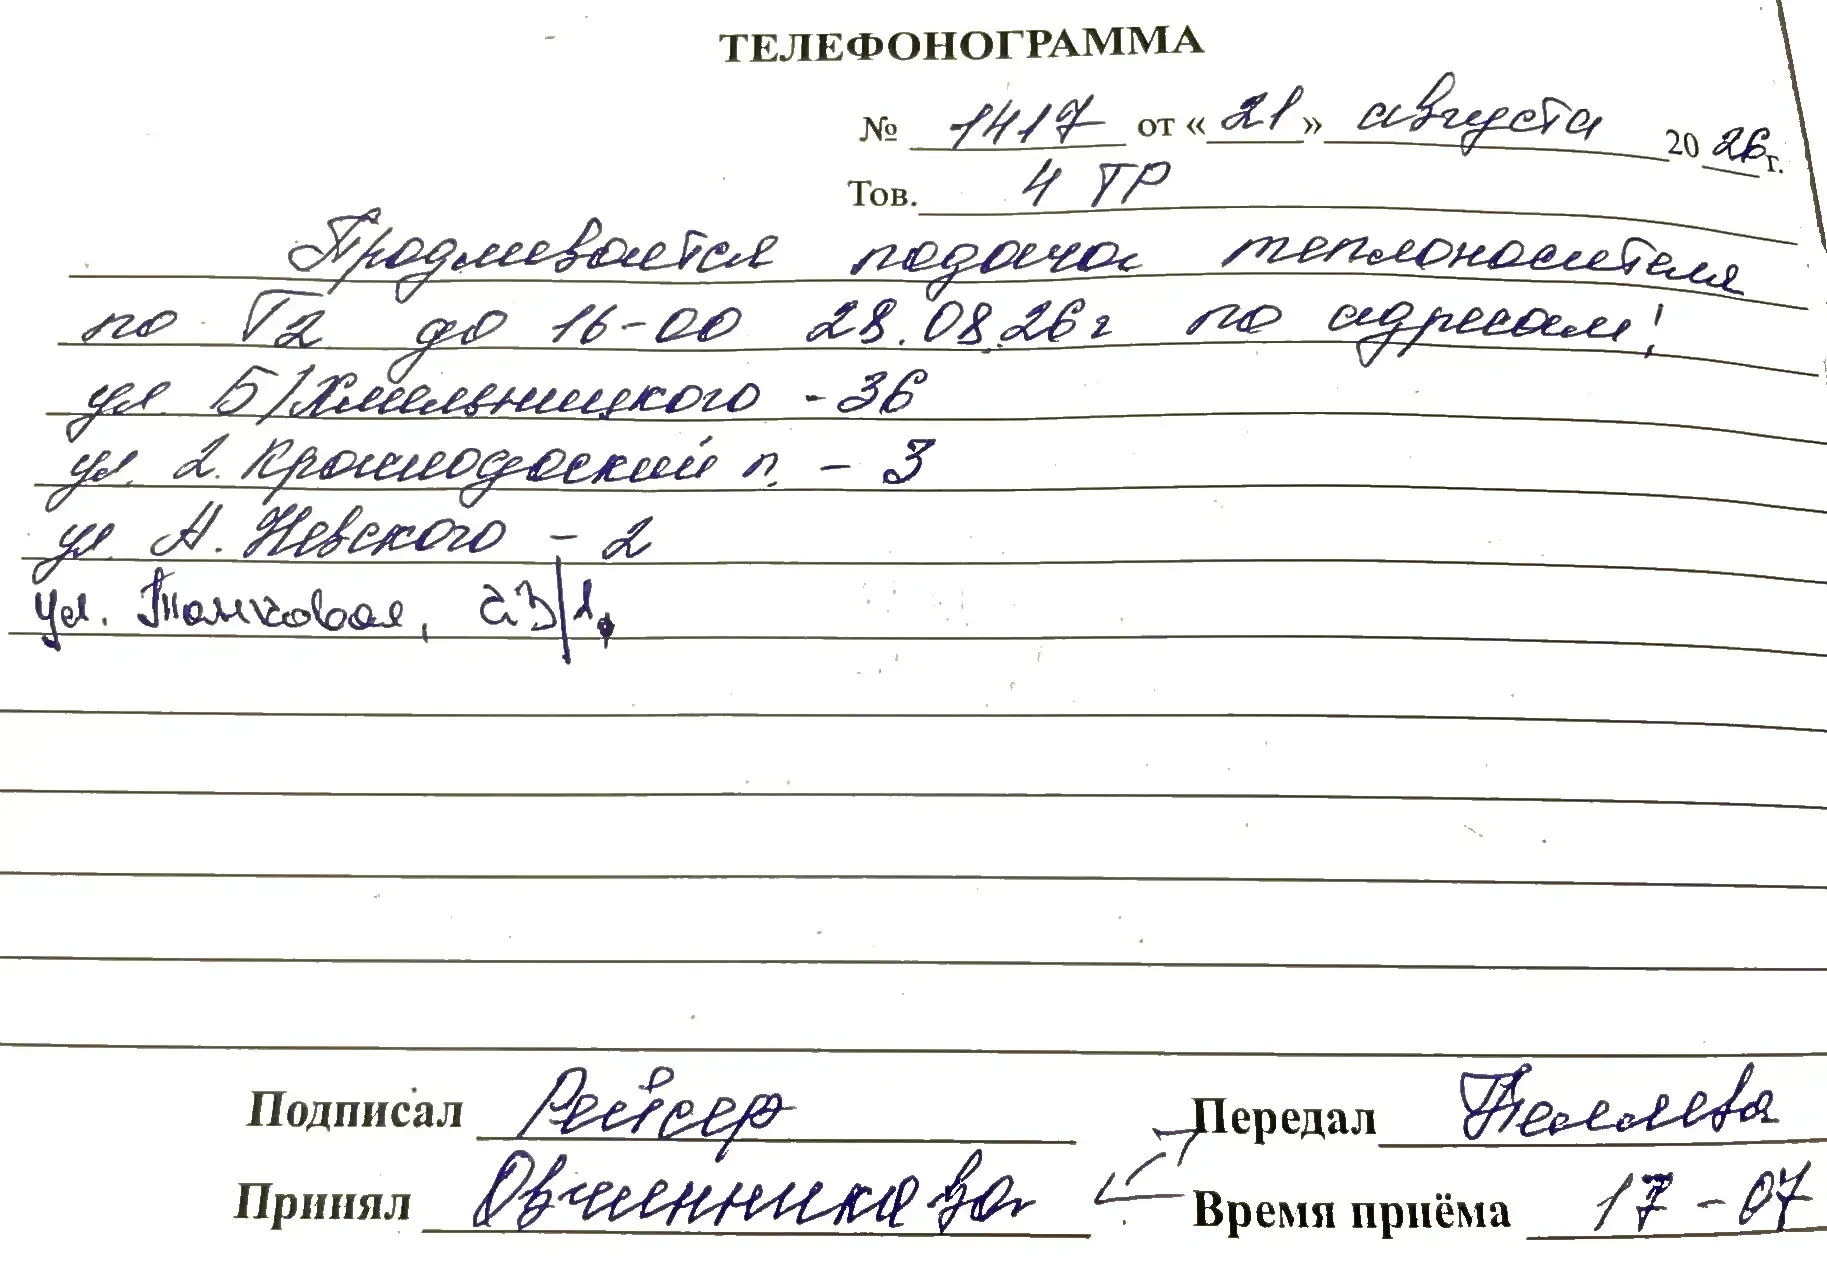 ТЕЛЕФОНОГРАММА
№ 1417 от «21» августа 2026г.
Тов. 4 ТР
Продлевается подача теплоносителя
по Т2 до 16-00 28.08.26г по адресам:
ул. Б/Хмельницкого - 36
ул. 2. Краснодонский п. - 3
ул. А. Невского - 2
ул. Танковая, 23/1,
Подписал Рейсер Передал
Принял Овчинникова Время приёма 17-07